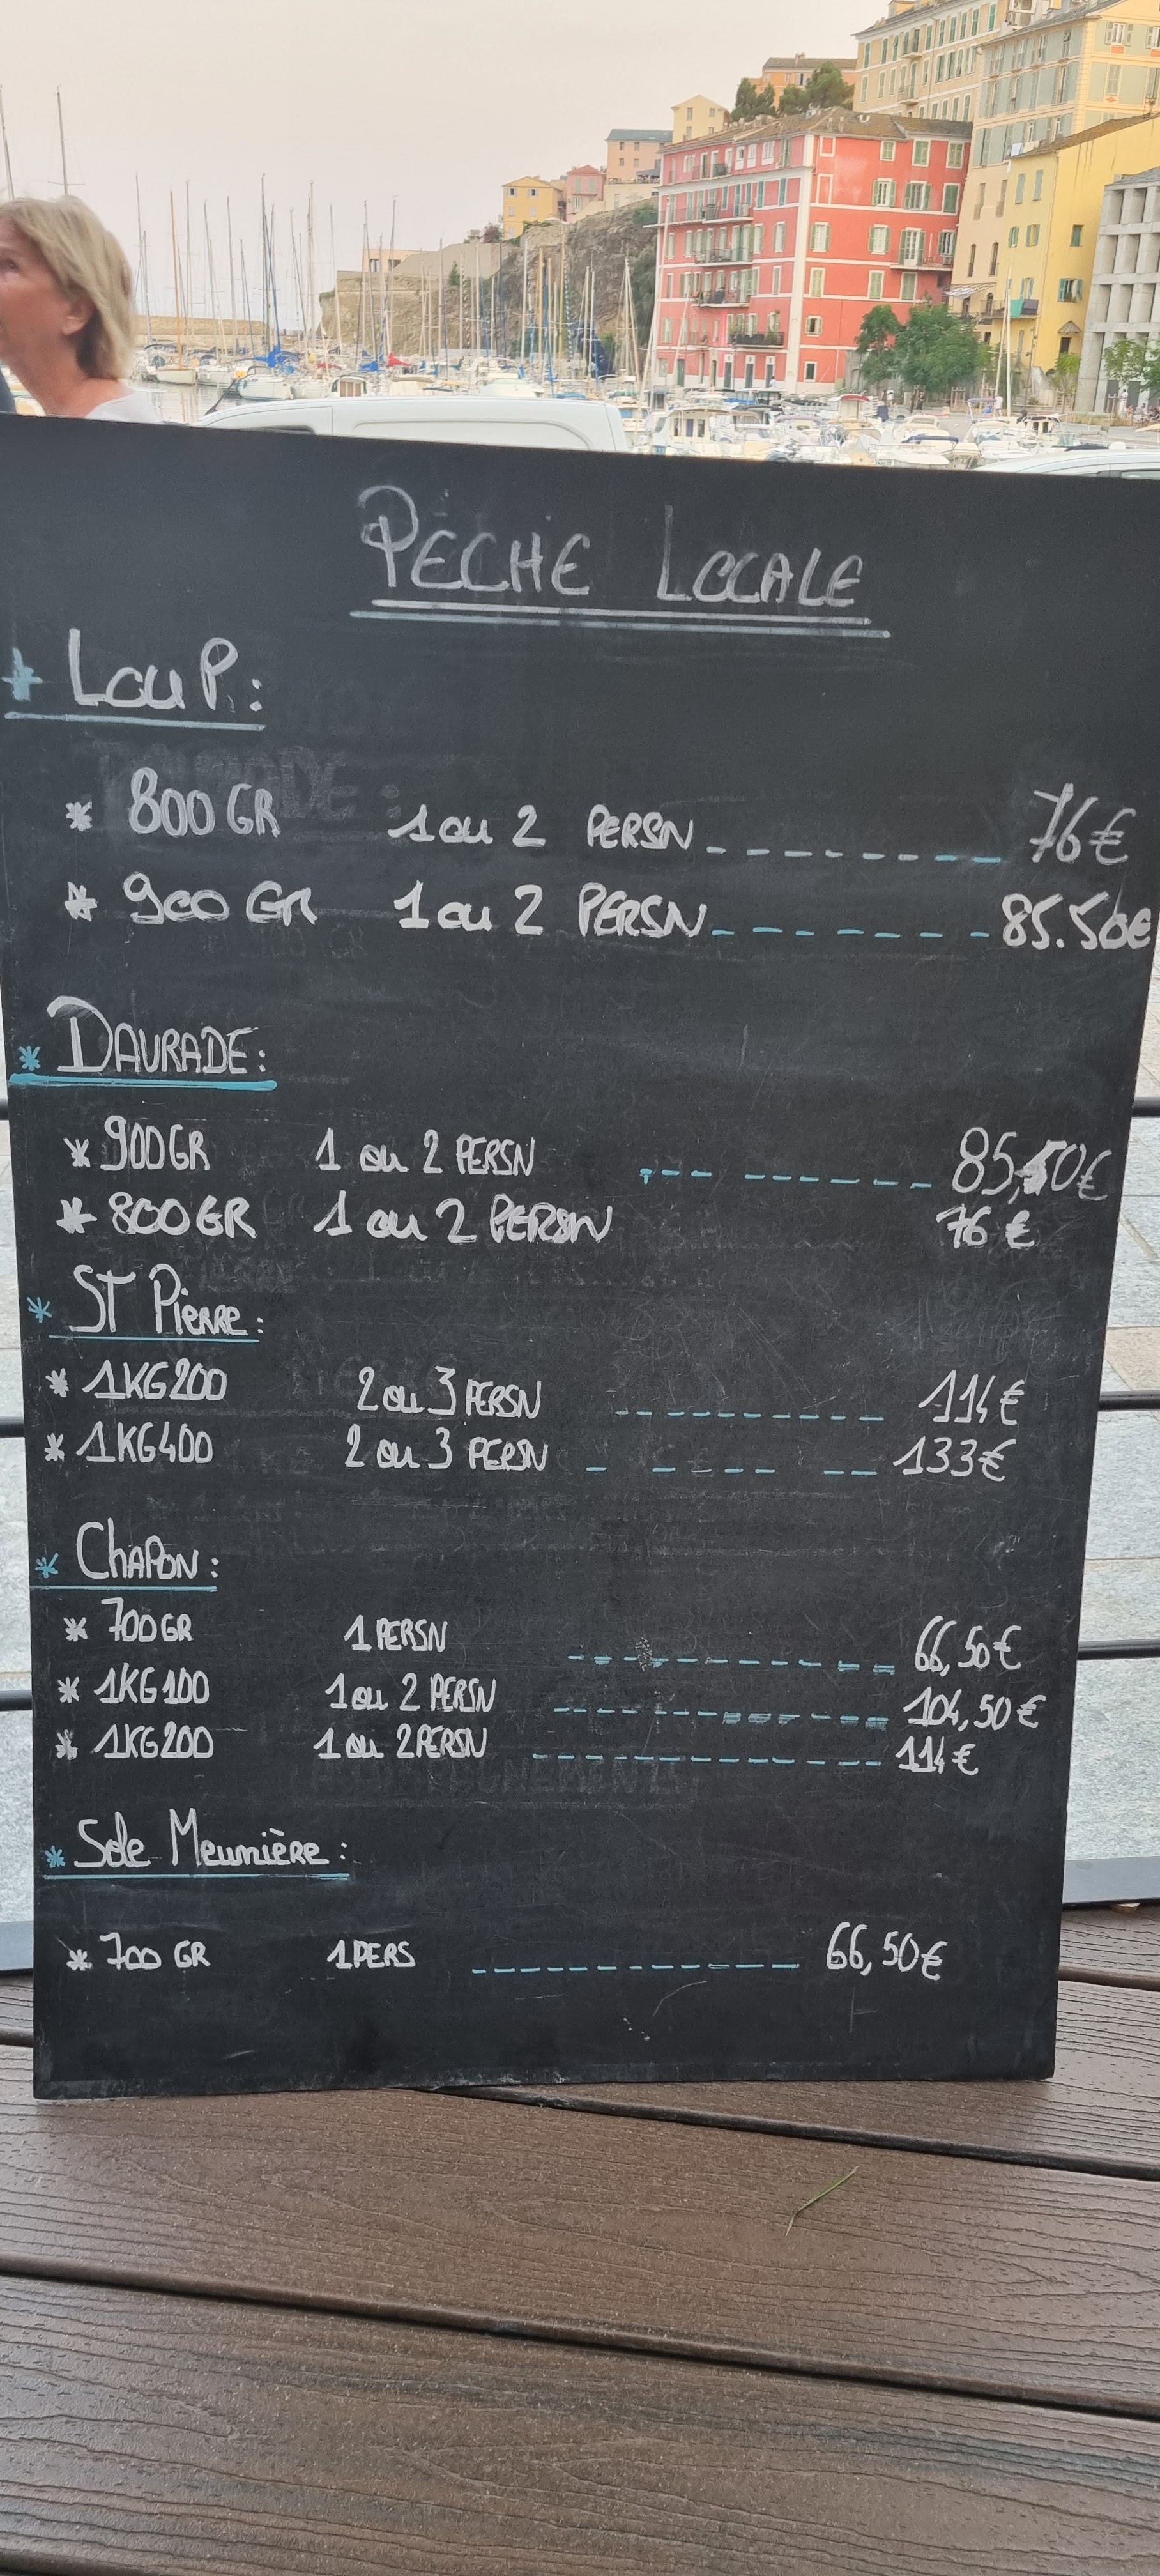 PECHE LOCALE
* LOUP:
* 800 GR 1 ou 2 PERSN 76€
* 900 GR 1 ou 2 PERSN 85.50€
* DAURADE:
* 900 GR 1 ou 2 PERSN 85,50€
* 800 GR 1 ou 2 PERSN 76 €
* ST PIERRE:
* 1KG200 2 ou 3 PERSN 114€
* 1KG400 2 ou 3 PERSN 133€
* CHAPON:
* 700 GR 1 PERSN 66,50€
* 1KG100 1 ou 2 PERSN 104,50€
* 1KG200 1 ou 2 PERSN 114€
* Sole Meunière:
* 700 GR 1 PERS 66,50€